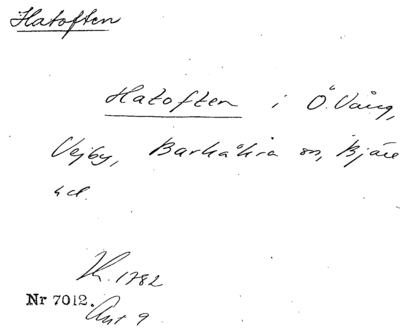 Hatoften
Hatoften i Ö. Vång,
Vejby, Barkåkra sn, Bjäre
hd.
Nr 7012.